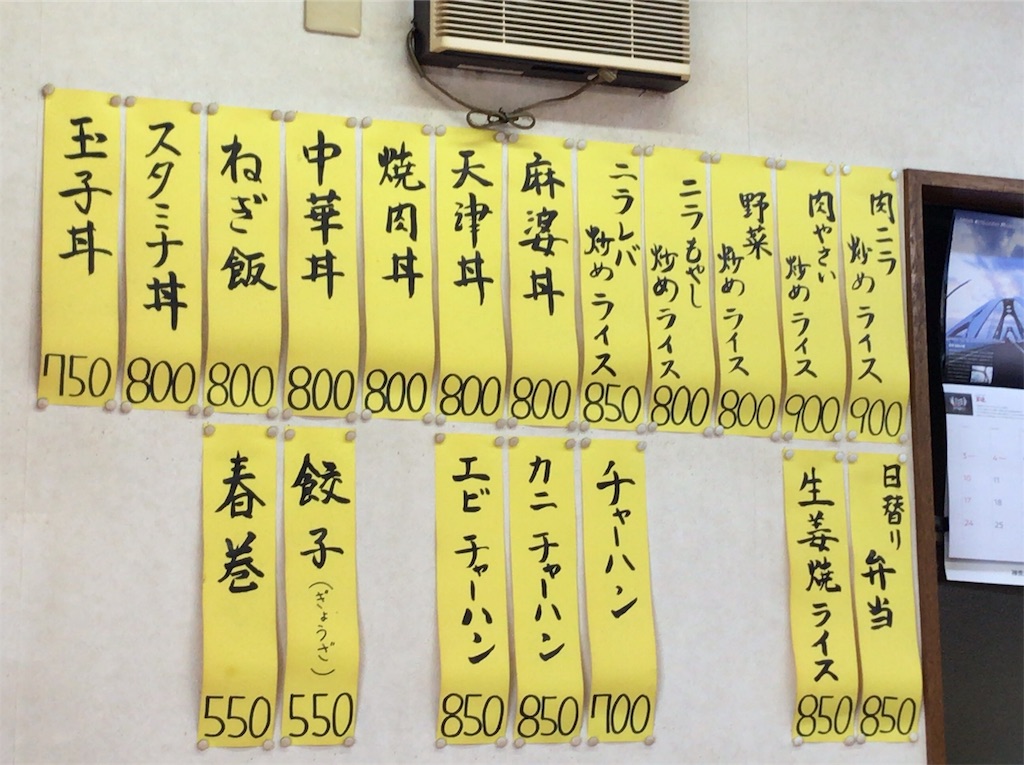 肉ニラ炒めライス
900
肉やさい炒めライス
900
野菜炒めライス
800
ニラもやし炒めライス
800
ニラレバ炒めライス
850
麻婆丼
800
天津丼
800
焼肉丼
800
中華丼
800
ねぎ飯
800
スタミナ丼
800
玉子丼
750
日替り弁当
850
生姜焼ライス
850
チャーハン
700
カニチャーハン
850
エビチャーハン
850
餃子(ぎょうざ)
550
春巻
550